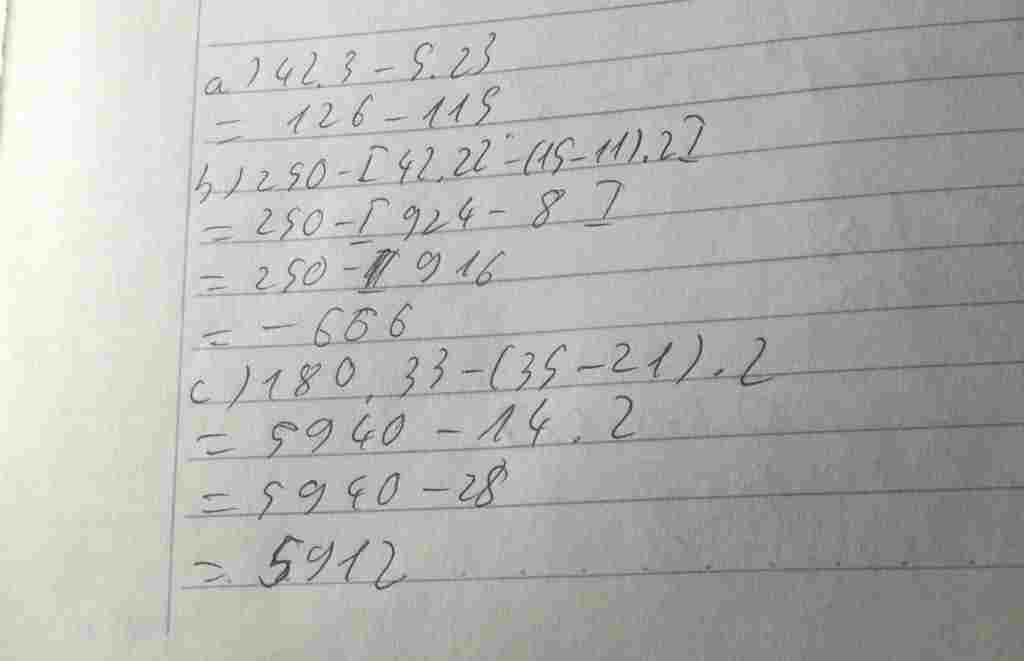 a) 42.3 - 5.23
= 126 - 115
b) 250 - [42.22 - (15 - 11).2]
= 250 - [924 - 8]
= 250 - 916
= - 666
c) 180.33 - (35 - 21).2
= 5940 - 14.2
= 5940 - 28
= 5912